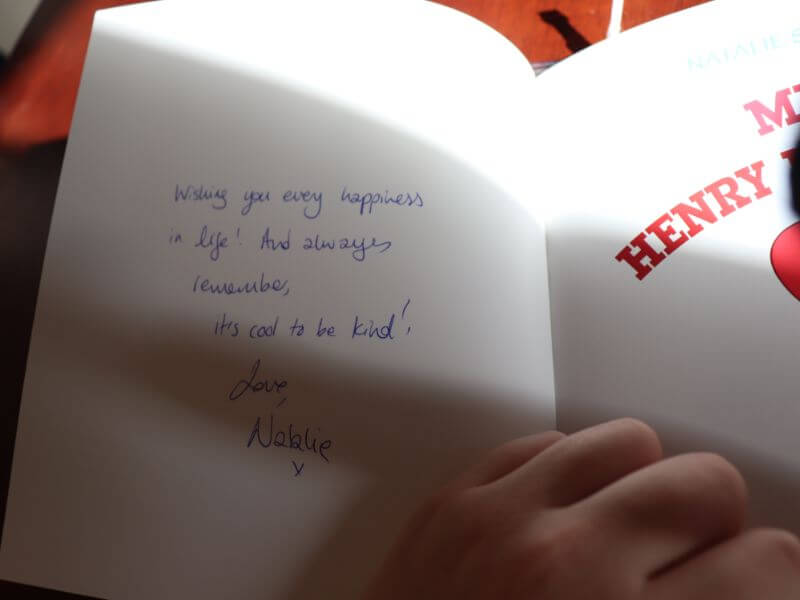 Wishing you every happiness
in life! And always
remember,
it's cool to be kind!
Love,
Natalie
x
NATALIE S
HENRY